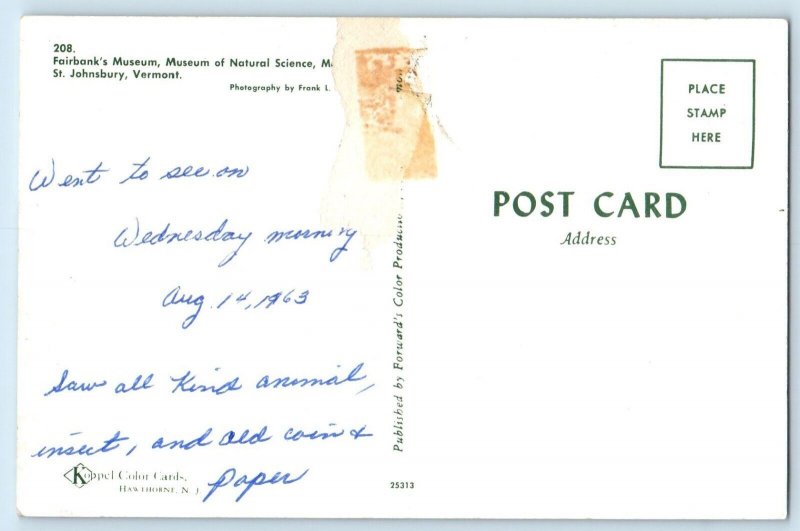 208.
Fairbank's Museum, Museum of Natural Science, M
St. Johnsbury, Vermont.
Photography by Frank L.
Went to see on
Wednesday morning
Aug. 14, 1963
Saw all kind animal,
insect, and old coin &
paper
Koppel Color Cards,
HAWTHORNE, N. J
Published by Forward's Color Produc
25313
PLACE
STAMP
HERE
POST CARD
Address